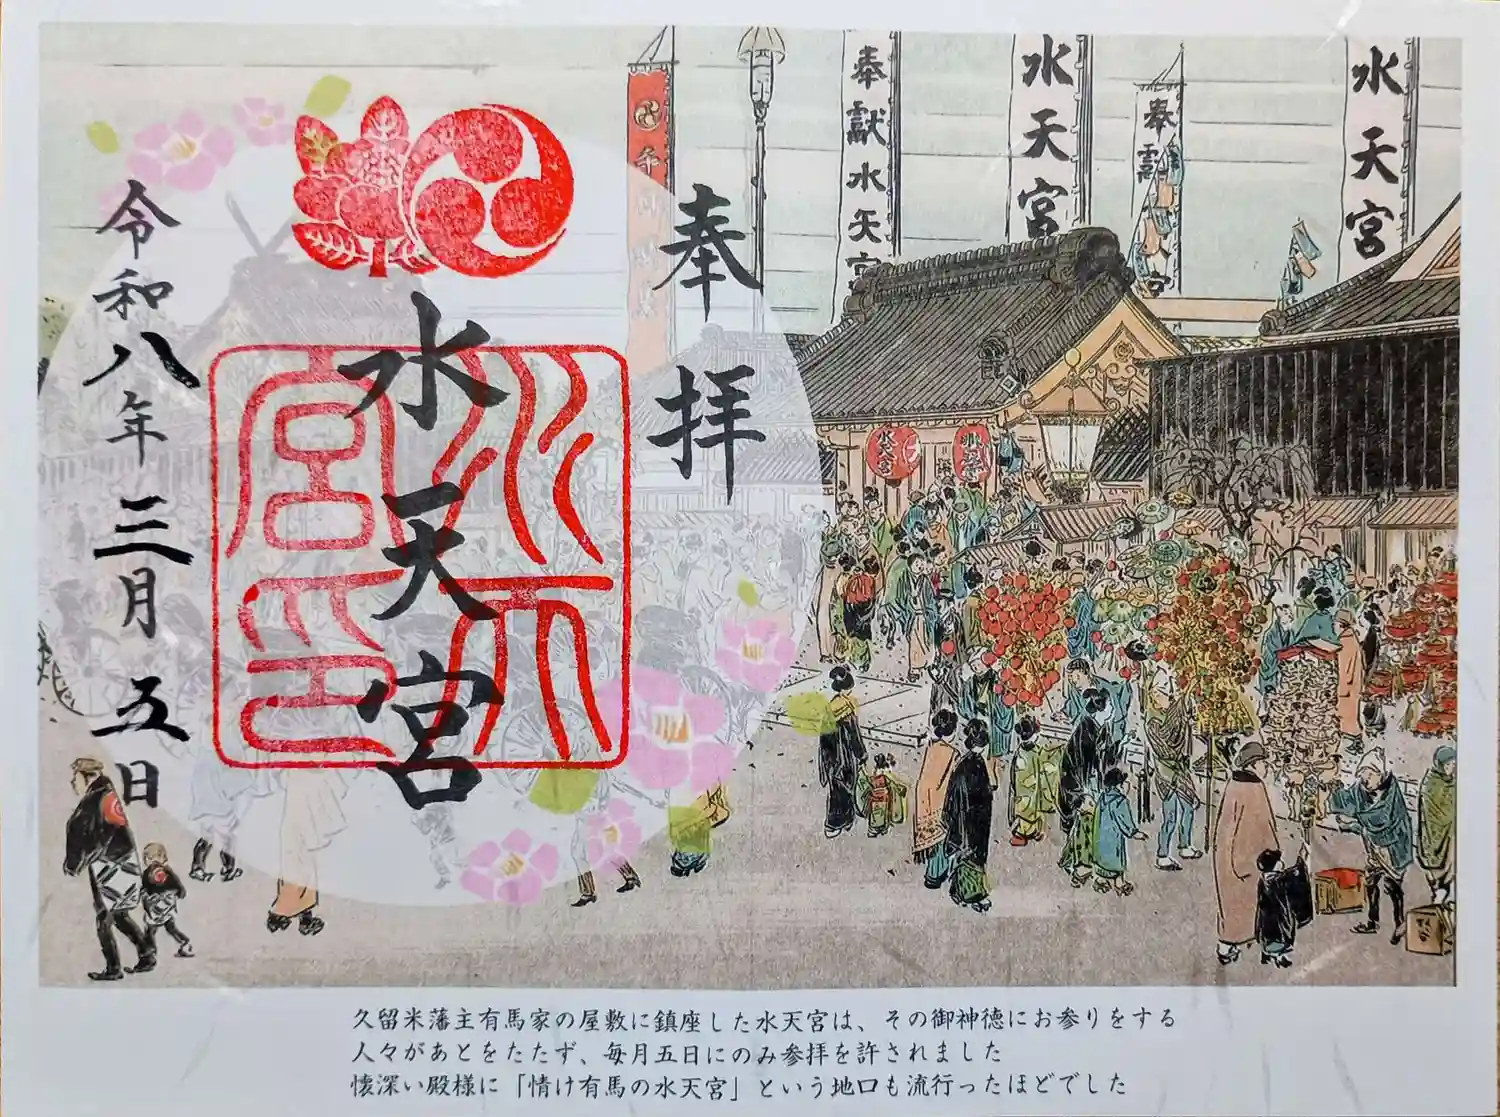 奉拝
水天宮
令和八年三月五日
水天宮印
奉獻水天宮
水天宮
奉獻
宮
水天宮
水天宮
久留米藩主有馬家の屋敷に鎮座した水天宮は、その御神徳にお参りをする
人々があとをたたず、毎月五日にのみ参拝を許されました
懐深い殿様に「情け有馬の水天宮」という地口も流行ったほどでした